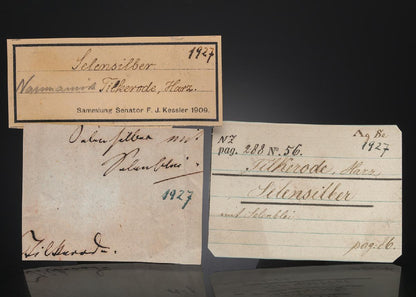 1927
Selensilber.
Naumannit Tilkerode, Harz.
Sammlung Senator F. J. Kessler 1909.
Selensilber mit
Selenblei.
1927
Tilkerode.
NZ
pag. 288 No. 56.
1927
Tilkerode, Harz
Selensilber
mit Selenblei
pag. 86.